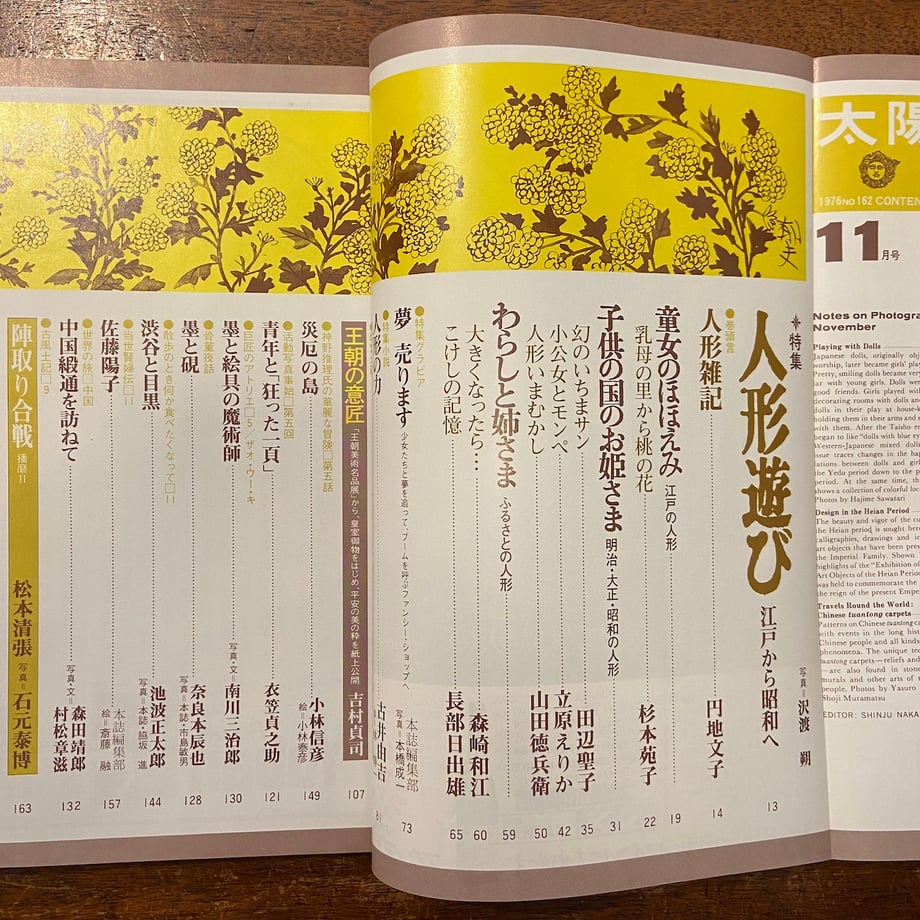 太陽
1976 NO 162 CONTEN
11月号
Notes on Photogra
November
Playing with Dolls
Japanese dolls, originally obj
worship, later became girls' play
Pretty, smiling dolls became very
lar with young girls. Dolls were
good friends. Girls played with
decorating rooms with dolls and
dolls in their play at house-
holding them in their arms and s
with them. After the Taisho er
began to like "dolls with blue eye
Western-Japanese mixed dolls
issue traces changes in the hap
lations between dolls and girls
the Yedo period down to the p
period. At the same time, th
shows a collection of colorful loc
Photos by Hajime Sawatari
Design in the Heian Period
The beauty and vigor of the cu
the Heian period is sought here
calligraphies, drawings and in
art objects that have been pres
the Imperial Family. Shown
highlights of the "Exhibition of
Art Objects of the Heian Period
was held to commemorate the
the reign of the present Emper
Travels Round the World:
Chinese tuantong carpets
Patterns on Chinese tuantong c
with events in the long hist
Chinese people and all kinds
phenomena. The unique tec
tuantong carpets—reliefs and
—are also found in stone
murals and other arts of t
people. Photos by Yasuro
Shoji Muramatsu
EDITOR: SHINJU NAKA
特集
人形遊び 江戸から昭和へ 写真=沢渡 朔 13
●巻頭言
人形雑記 円地文子 14
童女のほほえみ 江戸の人形 19
乳母の里から桃の花 杉本苑子 22
子供の国のお姫さま 明治・大正・昭和の人形 31
幻のいちまサン 田辺聖子 35
小公女とモンペ 立原えりか 42
人形いまむかし 山田徳兵衛 50
わらしと姉さま ふるさとの人形 59
大きくなったら… 森崎和江 60
こけしの記憶 長部日出雄 65
●特集グラビア
夢 売ります 少女たちと夢を追って、ブームを呼ぶファンシー・ショップへ 本誌編集部 写真=本橋成一 73
●特集小説
人形の力 古井由吉 81
王朝の意匠 「王朝美術名品展」から、皇室御物をはじめ、平安の美の粋を紙上公開 吉村貞司 107
●神野推理氏の華麗な冒険□第五話
災厄の島 小林信彦 絵=小林泰彦 149
●活動写真事始□第五回
青年と「狂った一頁」 衣笠貞之助 121
●巨匠のアトリエ□5 ザオ・ウー・キ
墨と絵具の魔術師 写真・文=南川三治郎 130
●骨董夜話
墨と硯 奈良本辰也 写真=本誌・市島敏男 128
●散歩のとき何か食べたくなって□11
渋谷と目黒 池波正太郎 写真=本誌・脇坂 進 144
●当世賢婦伝□11
佐藤陽子 本誌編集部 絵=斎藤 融 157
●世界の旅□中国
中国緞通を訪ねて 写真・文=森田靖郎 村松章滋 132
●古風土記□9
陣取り合戦 播磨II 松本清張 写真=石元泰博 163